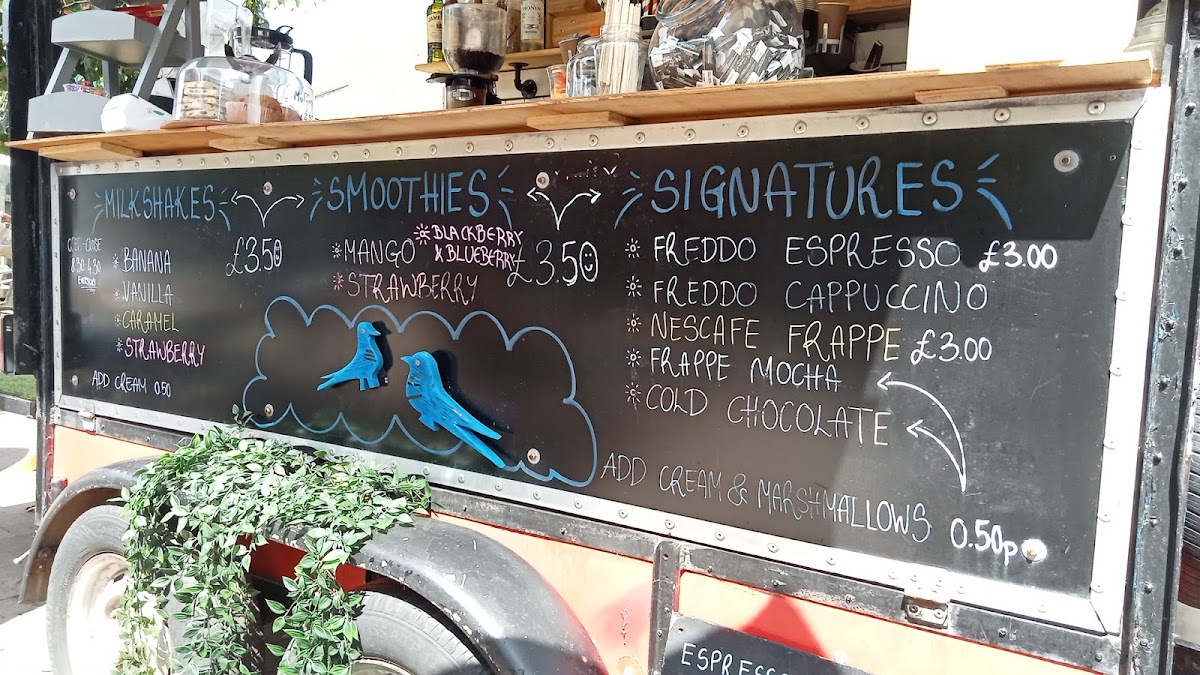 MILKSHAKES
OPEN-CLOSE
8:30-4:30
BANANA
VANILLA
CARAMEL
STRAWBERRY
£3.50
ADD CREAM 0.50
SMOOTHIES
MANGO
BLACKBERRY
& BLUEBERRY
STRAWBERRY
£3.50
SIGNATURES
FREDDO ESPRESSO £3.00
FREDDO CAPPUCCINO
NESCAFE FRAPPE £3.00
FRAPPE MOCHA
COLD CHOCOLATE
ADD CREAM & MARSHMALLOWS 0.50p